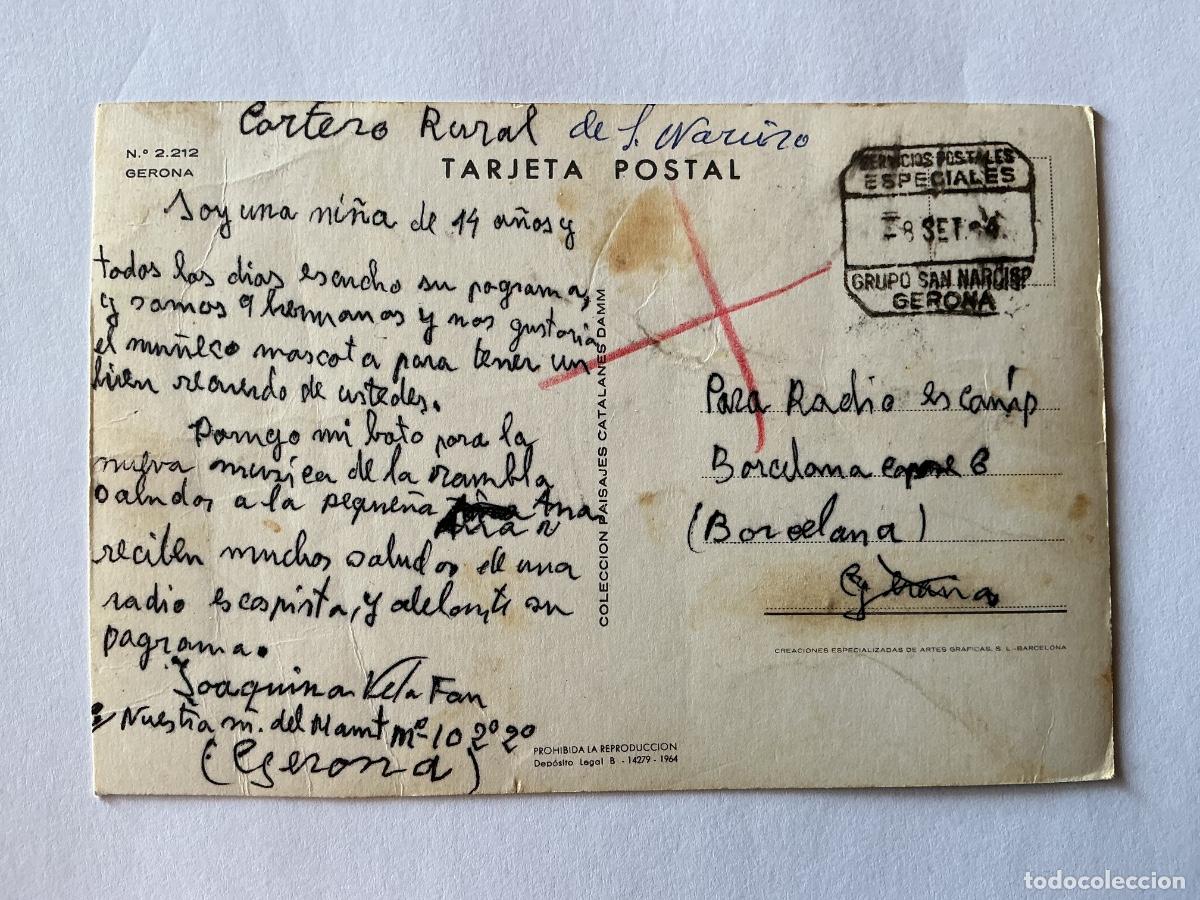 Cartero Rural de S. Narciso
N.º 2.212
GERONA
TARJETA POSTAL
SERVICIOS POSTALES
ESPECIALES
8 SET.
GRUPO SAN NARCISO
GERONA
Soy una niña de 14 años y
todos los dias escucho su pograma,
y somos 9 hermanos y nos gustaria
el muñeco mascota para tener un
bien recuerdo de ustedes.
Pongo mi boto para la
nueva musica de la rambla
saludos a la pequeña Ana
reciben muchos saludos de una
radio escopista, y adelante su
pagrama.
Joaquina Vela Fan
Nuestra m. del Mamt mº 10 2º 2º
(Gerona)
COLECCION PAISAJES CATALANES DAMM
Para Radio escanip
Barcelona 6
(Barcelana)
CREACIONES ESPECIALIZADAS DE ARTES GRAFICAS, S. L.-BARCELONA
PROHIBIDA LA REPRODUCCION
Depósito Legal B - 14279 - 1964
todocoleccion